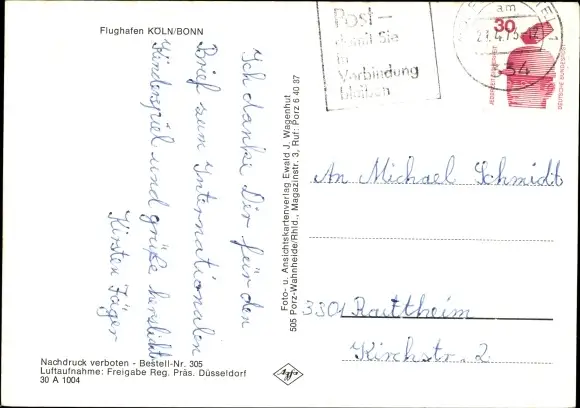 Flughafen KÖLN/BONN
Ich danke Dir für den
Brief zum Internationalen
Kinderspiel und grüße herzlichst
Kirsten Jäger
Nachdruck verboten - Bestell-Nr. 305
Luftaufnahme: Freigabe Reg. Präs. Düsseldorf
30 A 1004
Foto- u. Ansichtskartenverlag Ewald J. Wagenhut
505 Porz-Wannheide/Rhld., Magazinstr. 3, Ruf: Porz 6 40 87
Post-
damit Sie
in
Verbindung
bleiben
am
21.4.75-12
534
30
JEDERZEIT SICHERHEIT
DEUTSCHE BUNDESPOST
An Michael Schmidt
3301 Rautheim
Kirchstr. 2
Afs